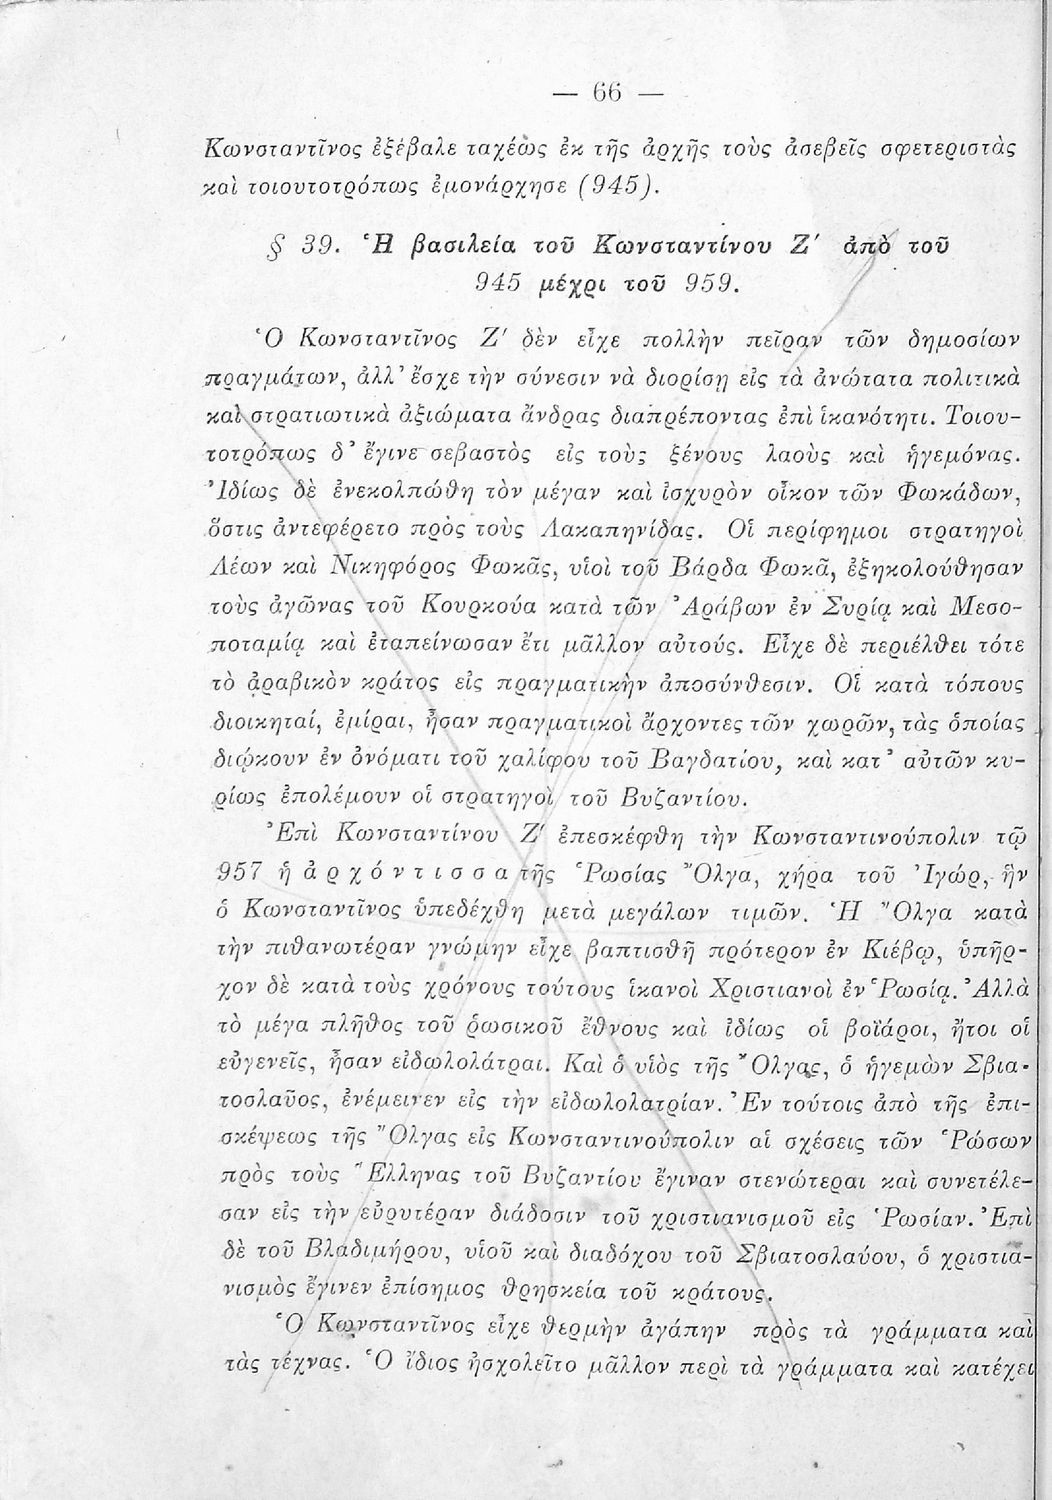 — 66 —
Κωνσταντῖνος ἐξέβαλε ταχέως ἐκ τῆς ἀρχῆς τοὺς ἀσεβεῖς σφετεριστὰς
καὶ τοιουτοτρόπως ἐμονάρχησε (945).
§ 39. Ἡ βασιλεία τοῦ Κωνσταντίνου Ζ′ ἀπὸ τοῦ
945 μέχρι τοῦ 959.
Ὁ Κωνσταντῖνος Ζ′ δὲν εἶχε πολλὴν πεῖραν τῶν δημοσίων
πραγμάτων, ἀλλ’ ἔσχε τὴν σύνεσιν νὰ διορίσῃ εἰς τὰ ἀνώτατα πολιτικὰ
καὶ στρατιωτικὰ ἀξιώματα ἄνδρας διαπρέποντας ἐπὶ ἱκανότητι. Τοιου-
τοτρόπως δ’ ἔγινε σεβαστὸς εἰς τοὺς ξένους λαοὺς καὶ ἡγεμόνας.
Ἰδίως δὲ ἐνεκολπώθη τὸν μέγαν καὶ ἰσχυρὸν οἶκον τῶν Φωκάδων,
ὅστις ἀντεφέρετο πρὸς τοὺς Λακαπηνίδας. Οἱ περίφημοι στρατηγοὶ
Λέων καὶ Νικηφόρος Φωκᾶς, υἱοὶ τοῦ Βάρδα Φωκᾶ, ἐξηκολούθησαν
τοὺς ἀγῶνας τοῦ Κουρκούα κατὰ τῶν Ἀράβων ἐν Συρίᾳ καὶ Μεσο-
ποταμίᾳ καὶ ἐταπείνωσαν ἔτι μᾶλλον αὐτούς. Εἶχε δὲ περιέλθει τότε
τὸ ἀραβικὸν κράτος εἰς πραγματικὴν ἀποσύνθεσιν. Οἱ κατὰ τόπους
διοικηταί, ἐμίραι, ἦσαν πραγματικοὶ ἄρχοντες τῶν χωρῶν, τὰς ὁποίας
διῴκουν ἐν ὀνόματι τοῦ χαλίφου τοῦ Βαγδατίου, καὶ κατ’ αὐτῶν κυ-
ρίως ἐπολέμουν οἱ στρατηγοὶ τοῦ Βυζαντίου.
Ἐπὶ Κωνσταντίνου Ζ′ ἐπεσκέφθη τὴν Κωνσταντινούπολιν τῷ
957 ἡ ἀρχόντισσα τῆς Ῥωσίας Ὄλγα, χήρα τοῦ Ἰγώρ, ἣν
ὁ Κωνσταντῖνος ὑπεδέχθη μετὰ μεγάλων τιμῶν. Ἡ Ὄλγα κατὰ
τὴν πιθανωτέραν γνώμην εἶχε βαπτισθῆ πρότερον ἐν Κιέβῳ, ὑπῆρ-
χον δὲ κατὰ τοὺς χρόνους τούτους ἱκανοὶ Χριστιανοὶ ἐν Ῥωσίᾳ. Ἀλλὰ
τὸ μέγα πλῆθος τοῦ ῥωσικοῦ ἔθνους καὶ ἰδίως οἱ βοϊάροι, ἤτοι οἱ
εὐγενεῖς, ἦσαν εἰδωλολάτραι. Καὶ ὁ υἱὸς τῆς Ὄλγας, ὁ ἡγεμὼν Σβια-
τοσλαῦος, ἐνέμεινεν εἰς τὴν εἰδωλολατρίαν. Ἐν τούτοις ἀπὸ τῆς ἐπι-
σκέψεως τῆς Ὄλγας εἰς Κωνσταντινούπολιν αἱ σχέσεις τῶν Ῥώσων
πρὸς τοὺς Ἕλληνας τοῦ Βυζαντίου ἔγιναν στενώτεραι καὶ συνετέλε-
σαν εἰς τὴν εὐρυτέραν διάδοσιν τοῦ χριστιανισμοῦ εἰς Ῥωσίαν. Ἐπὶ
δὲ τοῦ Βλαδιμήρου, υἱοῦ καὶ διαδόχου τοῦ Σβιατοσλαύου, ὁ χριστια-
νισμὸς ἔγινεν ἐπίσημος θρησκεία τοῦ κράτους.
Ὁ Κωνσταντῖνος εἶχε θερμὴν ἀγάπην πρὸς τὰ γράμματα καὶ
τὰς τέχνας. Ὁ ἴδιος ἠσχολεῖτο μᾶλλον περὶ τὰ γράμματα καὶ κατέχει